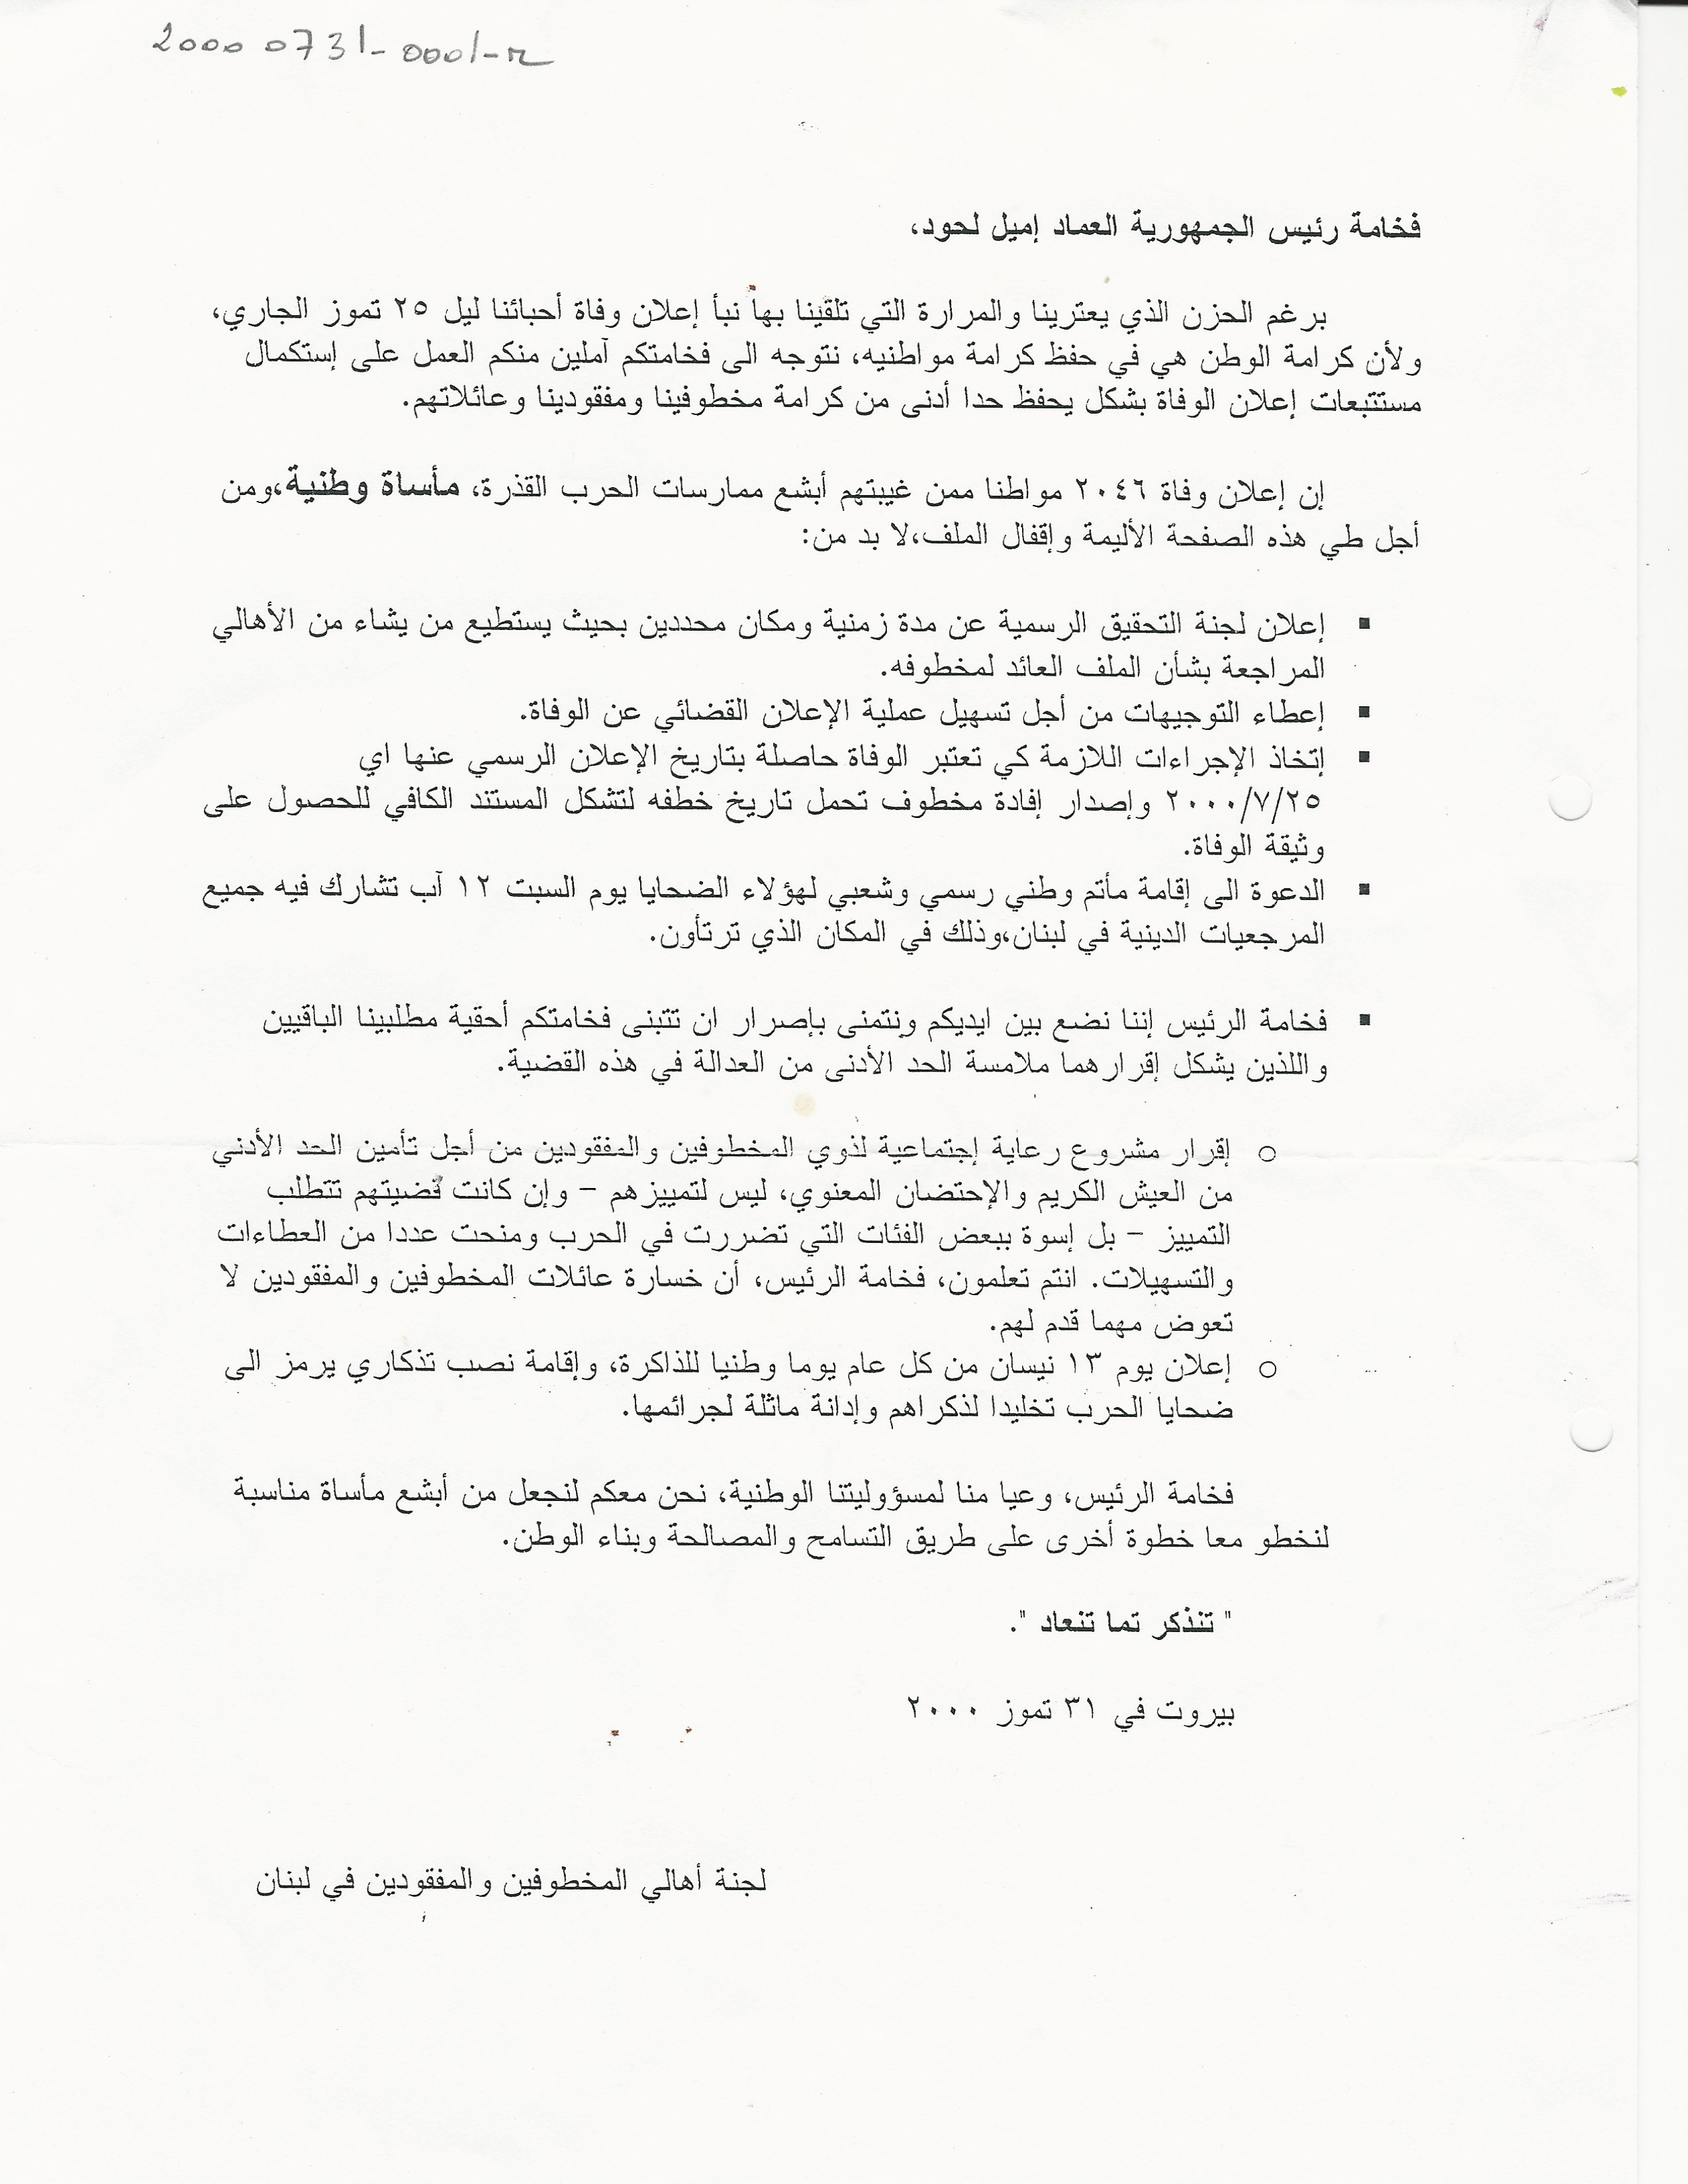 20000731-0001-م
فخامة رئيس الجمهورية العماد إميل لحود،
برغم الحزن الذي يعترينا والمرارة التي تلقينا بها نبأ إعلان وفاة أحبائنا ليل ٢٥ تموز الجاري،
ولأن كرامة الوطن هي في حفظ كرامة مواطنيه، نتوجه الى فخامتكم آملين منكم العمل على إستكمال
مستتبعات إعلان الوفاة بشكل يحفظ حدا أدنى من كرامة مخطوفينا ومفقودينا وعائلاتهم.
إن إعلان وفاة ٢٠٤٦ مواطنا ممن غيبتهم أبشع ممارسات الحرب القذرة، مأساة وطنية،ومن
أجل طي هذه الصفحة الأليمة وإقفال الملف،لا بد من:
▪ إعلان لجنة التحقيق الرسمية عن مدة زمنية ومكان محددين بحيث يستطيع من يشاء من الأهالي
المراجعة بشأن الملف العائد لمخطوفه.
▪ إعطاء التوجيهات من أجل تسهيل عملية الإعلان القضائي عن الوفاة.
▪ إتخاذ الإجراءات اللازمة كي تعتبر الوفاة حاصلة بتاريخ الإعلان الرسمي عنها اي
٢٠٠٠/٧/٢٥ وإصدار إفادة مخطوف تحمل تاريخ خطفه لتشكل المستند الكافي للحصول على
وثيقة الوفاة.
▪ الدعوة الى إقامة مأتم وطني رسمي وشعبي لهؤلاء الضحايا يوم السبت ١٢ آب تشارك فيه جميع
المرجعيات الدينية في لبنان،وذلك في المكان الذي ترتأون.
▪ فخامة الرئيس إننا نضع بين ايديكم ونتمنى بإصرار ان تتبنى فخامتكم أحقية مطلبينا الباقيين
واللذين يشكل إقرارهما ملامسة الحد الأدنى من العدالة في هذه القضية.
○ إقرار مشروع رعاية إجتماعية لذوي المخطوفين والمفقودين من أجل تأمين الحد الأدني
من العيش الكريم والإحتضان المعنوي، ليس لتمييزهم – وإن كانت قضيتهم تتطلب
التمييز – بل إسوة ببعض الفئات التي تضررت في الحرب ومنحت عددا من العطاءات
والتسهيلات. انتم تعلمون، فخامة الرئيس، أن خسارة عائلات المخطوفين والمفقودين لا
تعوض مهما قدم لهم.
○ إعلان يوم ١٣ نيسان من كل عام يوما وطنيا للذاكرة، وإقامة نصب تذكاري يرمز الى
ضحايا الحرب تخليدا لذكراهم وإدانة ماثلة لجرائمها.
فخامة الرئيس، وعيا منا لمسؤوليتنا الوطنية، نحن معكم لنجعل من أبشع مأساة مناسبة
لنخطو معا خطوة أخرى على طريق التسامح والمصالحة وبناء الوطن.
" تنذكر تما تنعاد ".
بيروت في ٣١ تموز ٢٠٠٠
لجنة أهالي المخطوفين والمفقودين في لبنان